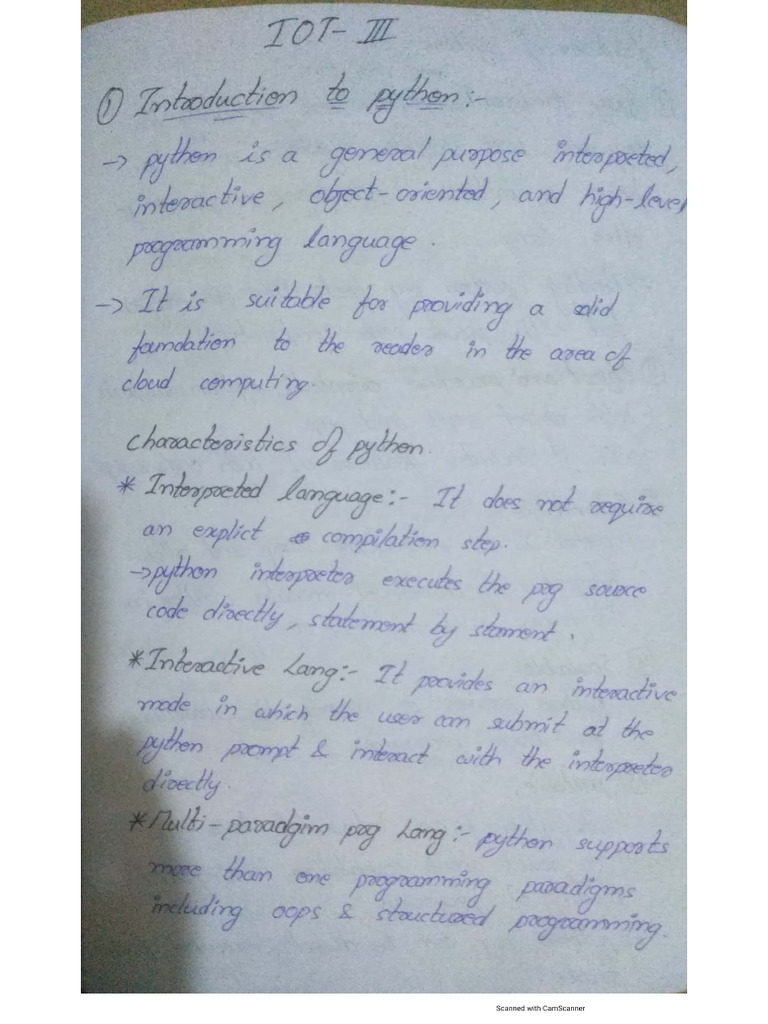 IOT- III
① Introduction to python:-
→ python is a general purpose interpreted,
interactive, object-oriented, and high-level
programming language.
→ It is suitable for providing a solid
foundation to the reader in the area of
cloud computing.
characteristics of python.
* Interpreted language:- It does not require
an explict compilation step.
→ python interpreter executes the prg source
code directly, statement by stament.
* Interactive Lang:- It provides an interactive
mode in which the user can submit at the
python prompt & interact with the interpreter
directly.
* Multi-paradgim prg Lang:- python supports
more than one programming paradigms
including oops & structured programming.
Scanned with CamScanner